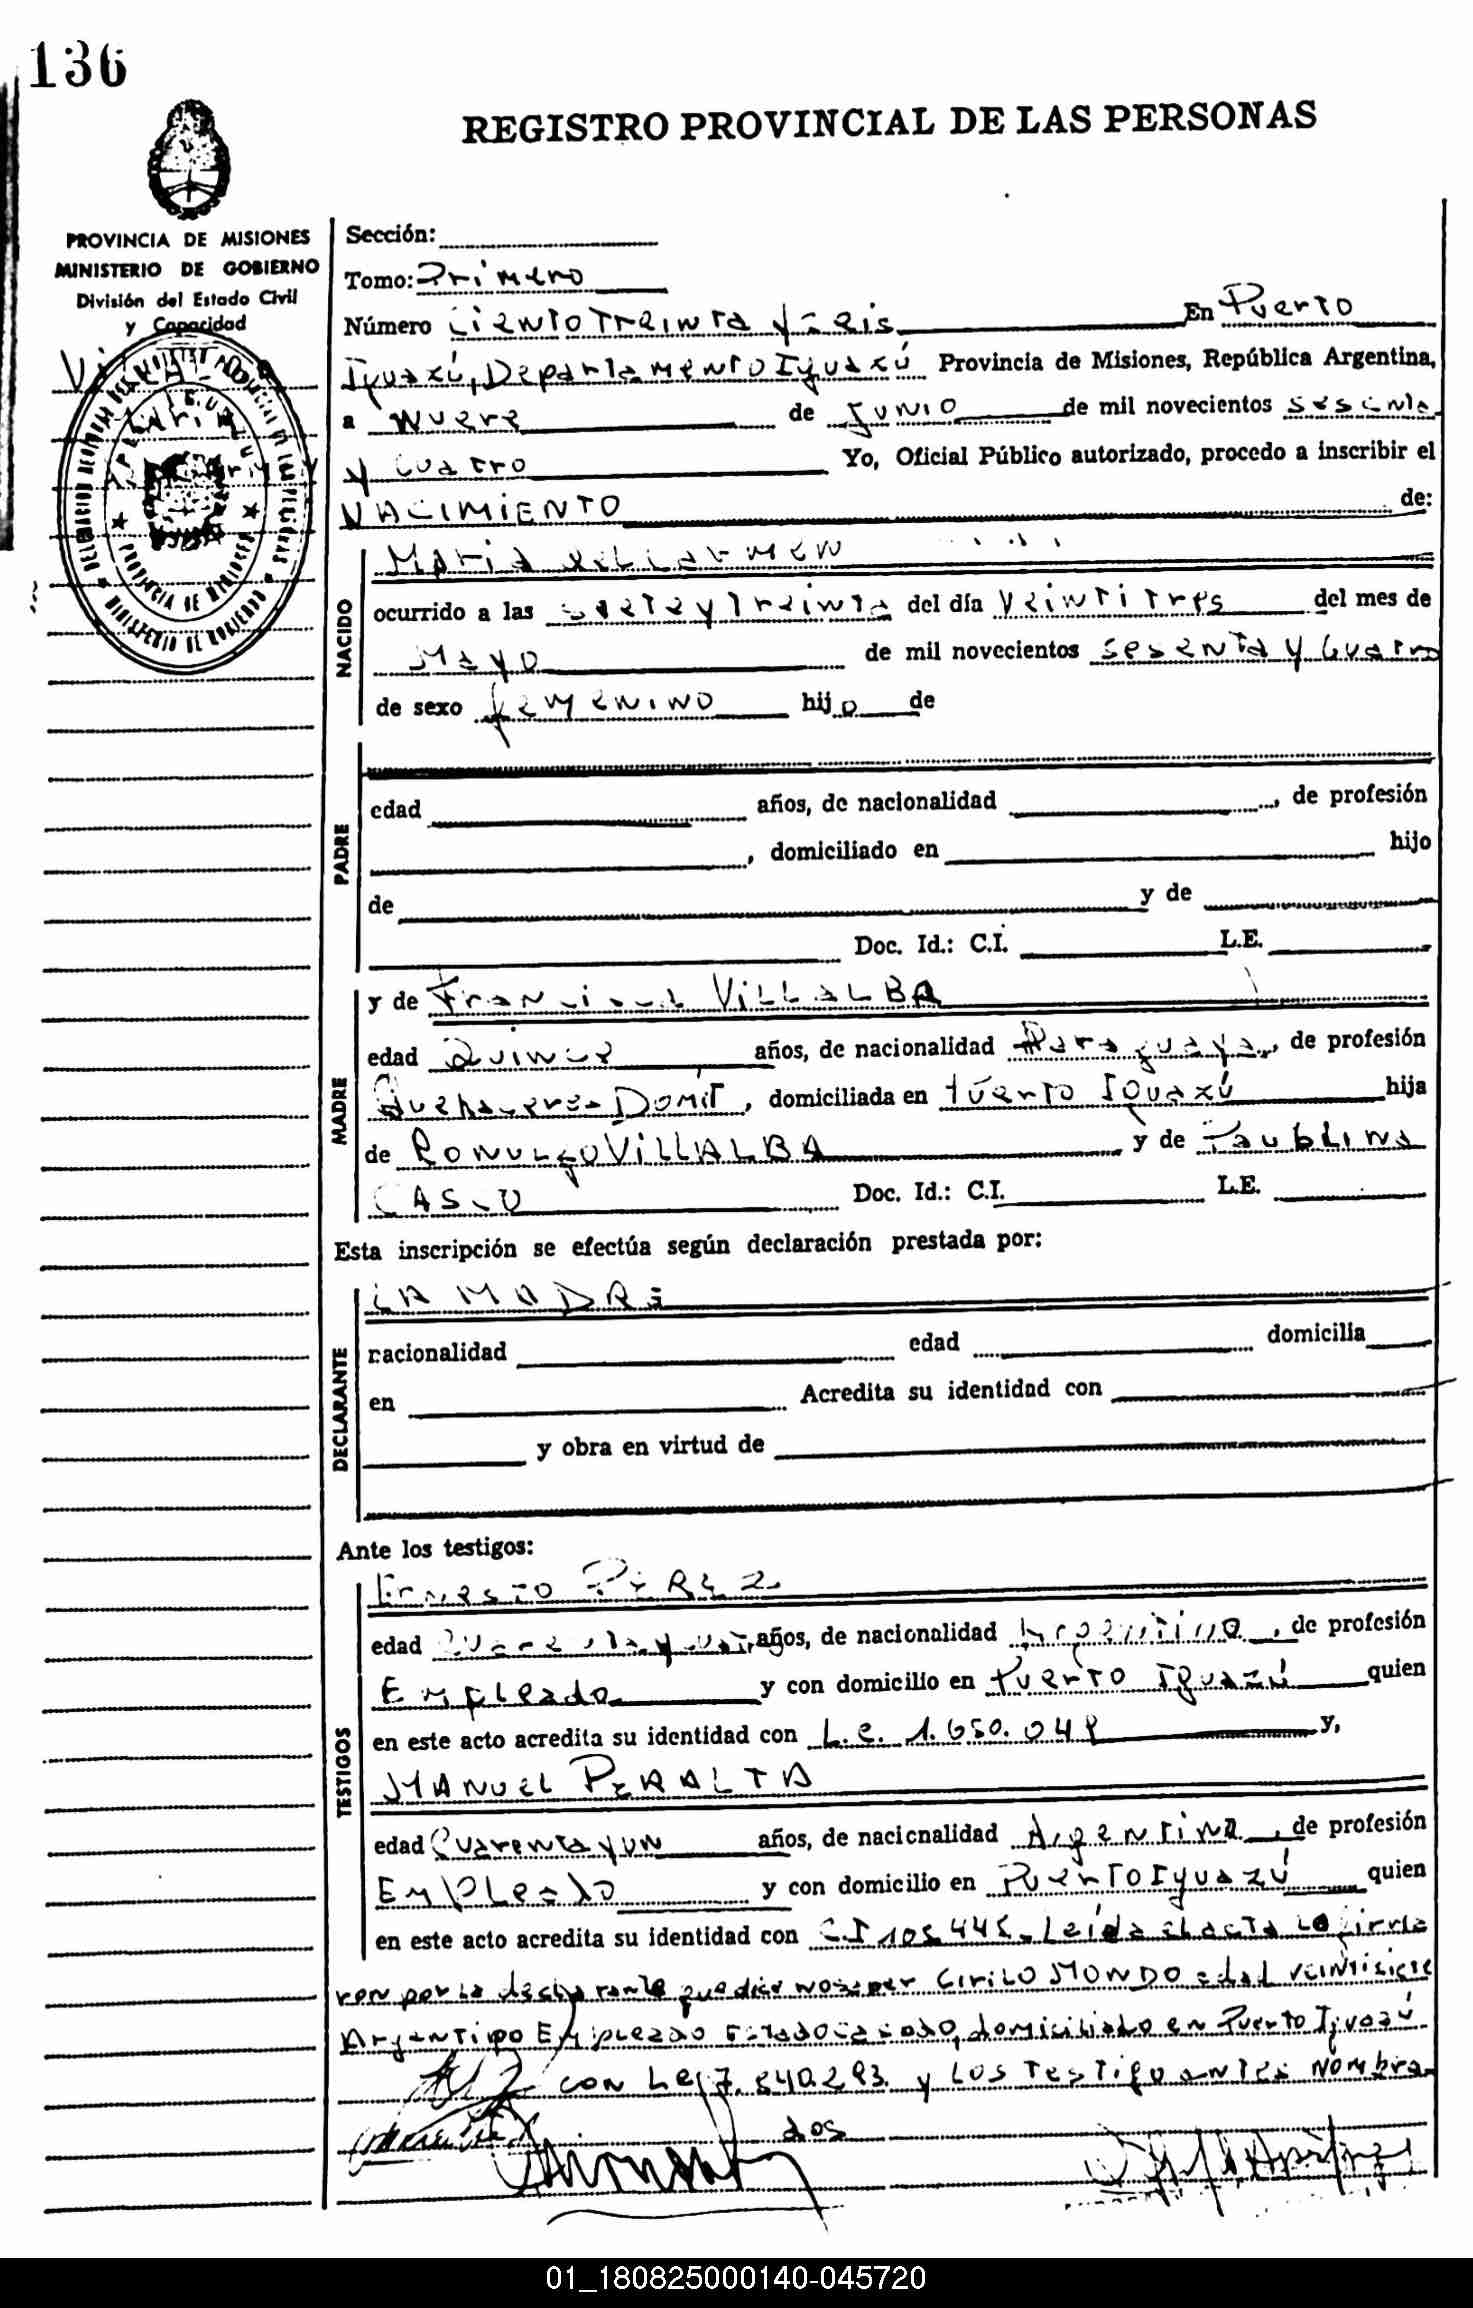 136
REGISTRO PROVINCIAL DE LAS PERSONAS
PROVINCIA DE MISIONES
MINISTERIO DE GOBIERNO
División del Estado Civil
y Capacidad
Sección:
Tomo: Primero
Número Ciento Treinta y Seis En Puerto
Iguazú, Departamento Iguazú Provincia de Misiones, República Argentina,
a Nueve de Junio de mil novecientos sesenta
y Cuatro Yo, Oficial Público autorizado, procedo a inscribir el
NACIMIENTO de:
NACIDO
Maria del Carmen
ocurrido a las siete y treinta del día Veintitres del mes de
Mayo de mil novecientos Sesenta y Cuatro
de sexo femenino hijo de
PADRE
edad años, de nacionalidad , de profesión
, domiciliado en hijo
de y de
Doc. Id.: C.I. L.E.
MADRE
y de Francisca VILLALBA
edad Quince años, de nacionalidad Paraguaya, de profesión
Quehaceres Domit, domiciliada en Puerto Iguazú hija
de ROMULFO VILLALBA y de
CASCO Doc. Id.: C.I. L.E.
Esta inscripción se efectúa según declaración prestada por:
DECLARANTE
LA MADRE
nacionalidad edad domicilia
en Acredita su identidad con
y obra en virtud de
Ante los testigos:
TESTIGOS
Ernesto PEREZ
edad años, de nacionalidad Argentina, de profesión
Empleado y con domicilio en Puerto Iguazú quien
en este acto acredita su identidad con L.e. y,
MANUEL PERALTA
edad Cuarenta y un años, de nacionalidad Argentina, de profesión
Empleado y con domicilio en Puerto Iguazú quien
en este acto acredita su identidad con CI Leída el acta la firma
ron por la declarante que dice no saber CIRILO MONDO edad veintisiete
Argentino Empleado Estado casado, domiciliado en Puerto Iguazú
con Le 7.840.293 y los testigo antes nombra
dos
01_180825000140-045720